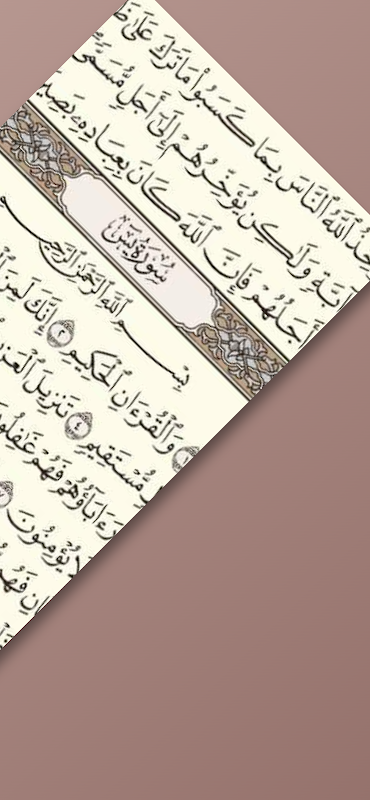 ٱللَّهُ ٱلنَّاسَ بِمَا كَسَبُوا۟ مَا تَرَكَ عَلَىٰ
وَلَٰكِن يُؤَخِّرُهُمْ إِلَىٰٓ أَجَلٍ مُّسَمًّى
أَجَلُهُمْ فَإِنَّ ٱللَّهَ كَانَ بِعِبَادِهِۦ بَصِيرًۢا
سُورَةُ يسٓ
بِسْمِ ٱللَّهِ ٱلرَّحْمَٰنِ ٱلرَّحِيمِ
١ وَٱلْقُرْءَانِ ٱلْحَكِيمِ ٢ إِنَّكَ لَمِنَ
مُّسْتَقِيمٍ ٤ تَنزِيلَ
ءَابَآؤُهُمْ فَهُمْ غَٰفِلُونَ
يُؤْمِنُونَ ٧
فَهُم